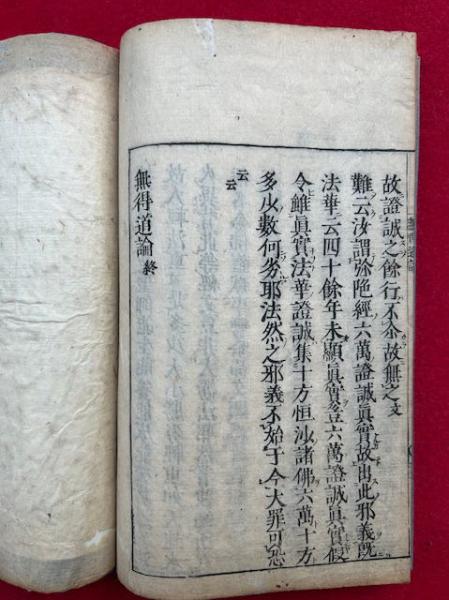 故證誠之餘行不余故無之文
難云汝謂弥陁經六萬證誠眞實故出此邪義既
法華云四十餘年未顯眞實豈六萬證誠眞實假
令雖眞實法華證誠集十方恒沙諸佛六萬十方
多少數何劣耶法然之邪義不始于今大罪可恐
云云
無得道論終